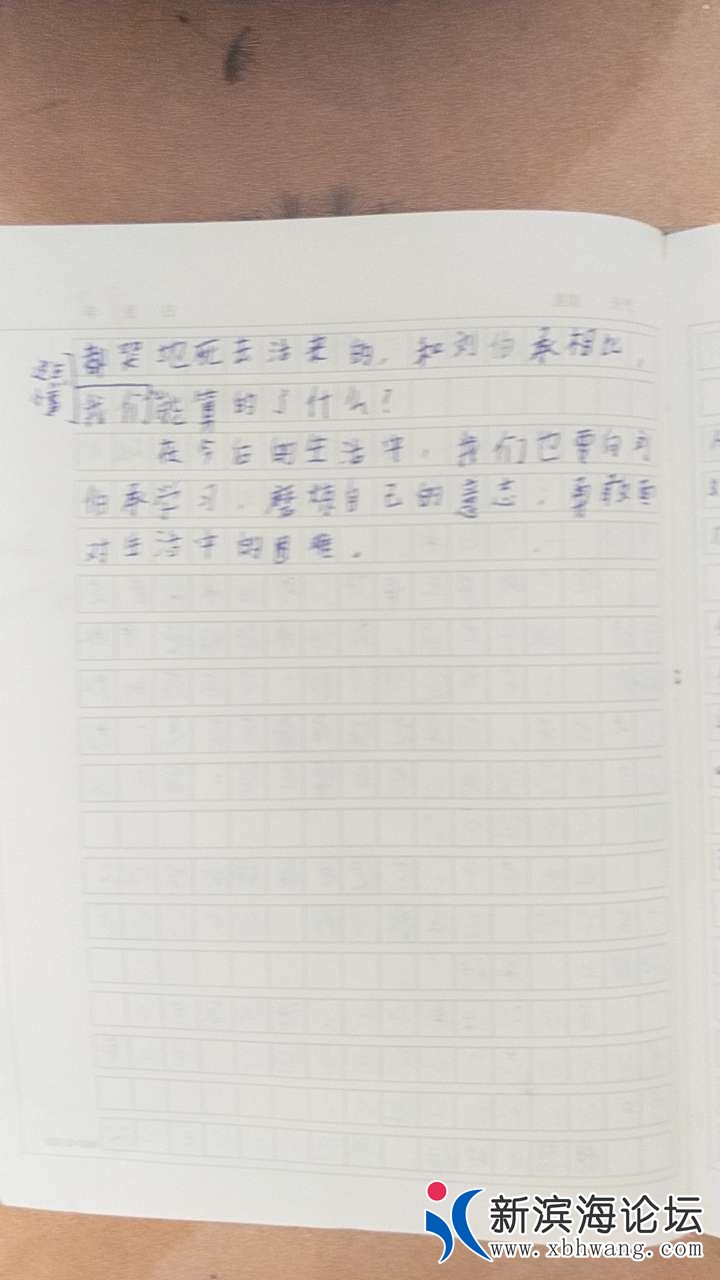 都哭地死去活来的，和刘伯承相比，
我们能算的了什么？
在今后的生活中，我们也要向刘
伯承学习，磨练自己的意志，勇敢面
对生活中的困难。
新滨海论坛
www.xbhwang.com